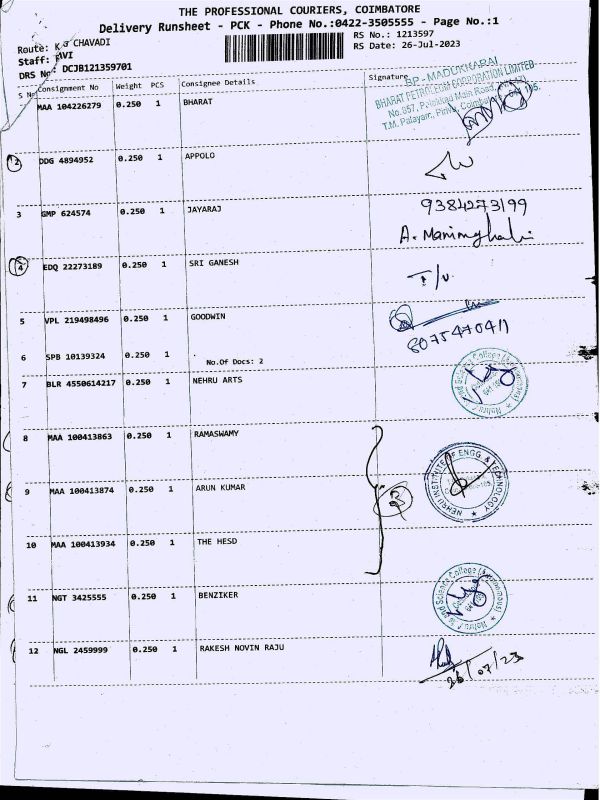 THE PROFESSIONAL COURIERS, COIMBATORE
Delivery Runsheet - PCK - Phone No.:0422-3505555 - Page No.:1
Route: K CHAVADI
RS No.: 1213597
Staff: AVI
RS Date: 26-Jul-2023
DRS No: DCJB121359701
S No Consignment No Weight PCS Consignee Details Signature
MAA 104226279 0.250 1 BHARAT
BP - MADUKKARAI
BHARAT PETROLEUM CORPORATION LIMITED
No.657, Palakkad Main Road,
T.M. Palayam,
2 DDG 4894952 0.250 1 APPOLO
3 GMP 624574 0.250 1 JAYARAJ
9384273199
4 EDQ 22273189 0.250 1 SRI GANESH
5 VPL 219498496 0.250 1 GOODWIN
8075470411
6 SPB 10139324 0.250 1 . No.Of Docs: 2
7 BLR 4550614217 0.250 1 NEHRU ARTS
8 MAA 100413863 0.250 1 RAMASWAMY
9 MAA 100413874 0.250 1 ARUN KUMAR
3
NEHRU INSTITUTE OF ENGG & TECHNOLOGY
10 MAA 100413934 0.250 1 THE HESD
11 NGT 3425555 0.250 1 BENZIKER
12 NGL 2459999 0.250 1 RAKESH NOVIN RAJU
26/07/23